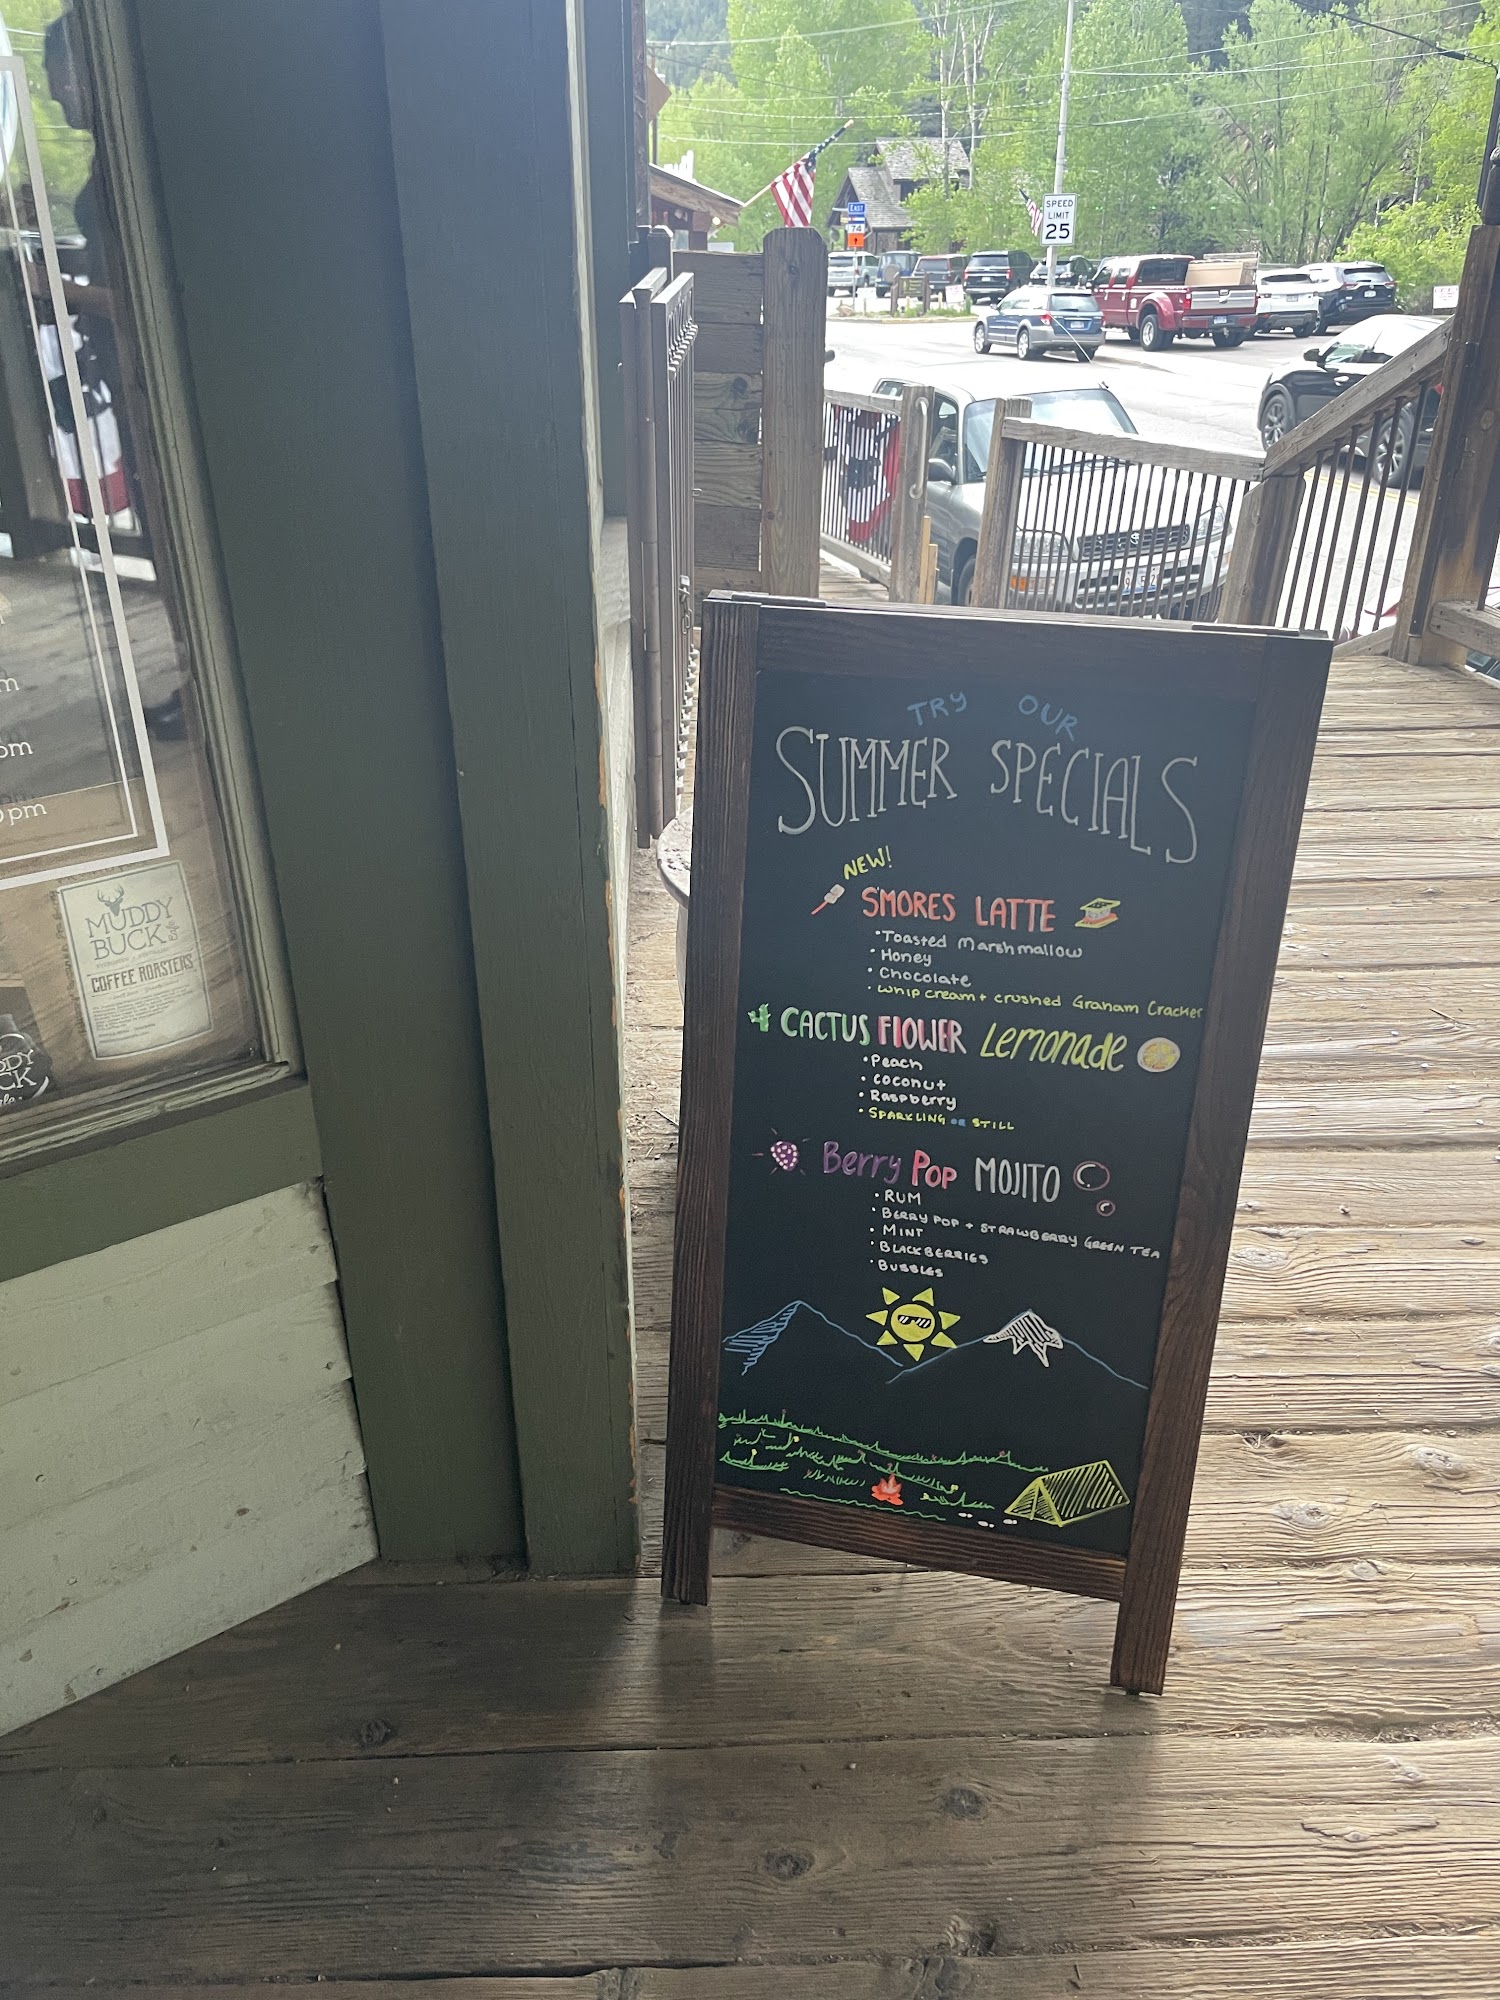 EAST
74
SPEED
LIMIT
25
m
pm
0pm
MUDDY
BUCK
Cafe
COFFEE ROASTERS
TRY OUR
SUMMER SPECIALS
NEW!
S'MORES LATTE
• Toasted Marshmallow
• Honey
• Chocolate
• Whip cream + crushed Graham Cracker
CACTUS FLOWER Lemonade
• Peach
• Coconut
• Raspberry
• SPARKLING OR STILL
Berry Pop MOJITO
• RUM
• BERRY POP + STRAWBERRY GREEN TEA
• MINT
• BLACKBERRIES
• BUBBLES